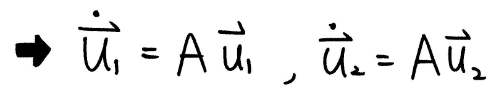 ➡ $\dot{\vec{u}}_1 = A\vec{u}_1$ , $\dot{\vec{u}}_2 = A\vec{u}_2$